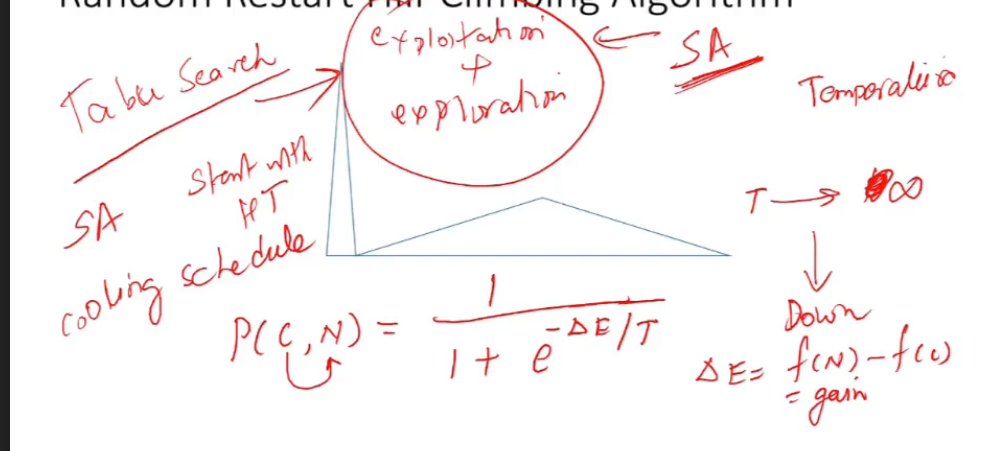 Random Restart Hill Climbing Algorithm
Tabu Search
exploitation
+
exploration
SA
Temperature
SA
Start with
HT
cooling schedule
T → ∞
Down
P(C,N) = 1 / 1 + e -ΔE/T
ΔE = f(N) - f(c)
= gain